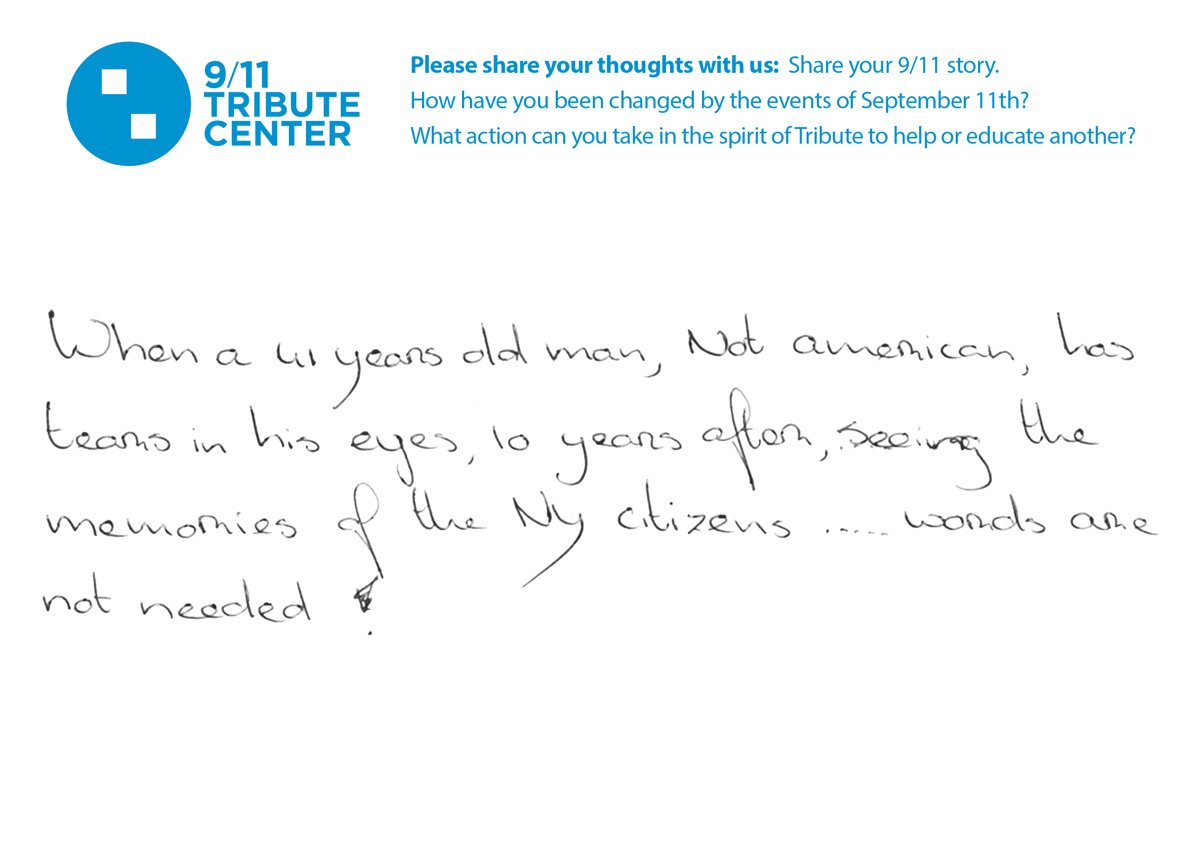 9/11
TRIBUTE
CENTER
Please share your thoughts with us: Share your 9/11 story.
How have you been changed by the events of September 11th?
What action can you take in the spirit of Tribute to help or educate another?
When a 41 years old man, Not american, has
tears in his eyes, 10 years after, seeing the
memories of the NY citizens ..... words are
not needed !